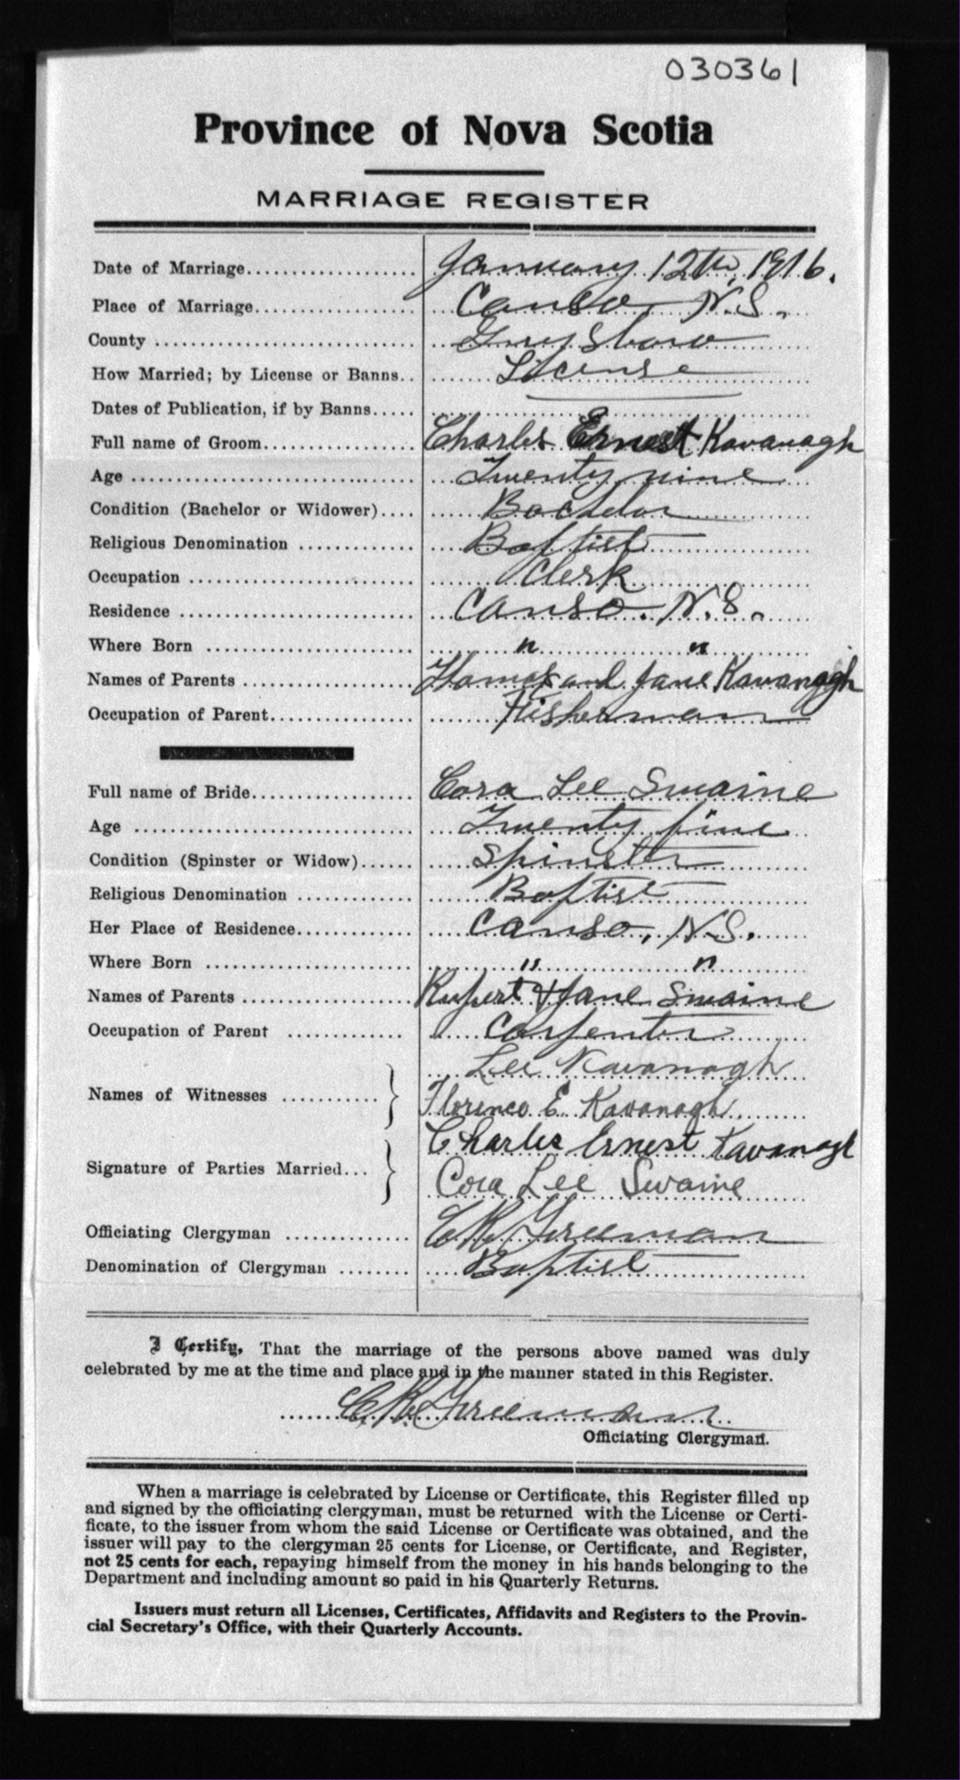 030361
Province of Nova Scotia
MARRIAGE REGISTER
Date of Marriage.................. January 12th, 1916.
Place of Marriage................. Canso, N.S.
County ........................... Guysboro
How Married; by License or Banns.. License
Dates of Publication, if by Banns.....
Full name of Groom................ Charles Ernest Kavanagh
Age .............................. Twenty nine
Condition (Bachelor or Widower).... Bachelor
Religious Denomination ............. Baptist
Occupation ......................... Clerk
Residence .......................... Canso. N.S.
Where Born ......................... " "
Names of Parents ................... Thomas and Jane Kavanagh
Occupation of Parent................ Fisherman
Full name of Bride.................. Cora Lee Swaine
Age ................................ Twenty five
Condition (Spinster or Widow)...... Spinster
Religious Denomination ............. Baptist
Her Place of Residence.............. Canso, N.S.
Where Born ......................... " "
Names of Parents ................... Rupert & Jane Swaine
Occupation of Parent ............... Carpenter
Lee Kavanagh
Names of Witnesses ........... } Florence E. Kavanagh
Charles Ernest Kavanagh
Signature of Parties Married... } Cora Lee Swaine
Officiating Clergyman .............. C R Freeman
Denomination of Clergyman ........ Baptist
I Certify, That the marriage of the persons above named was duly
celebrated by me at the time and place and in the manner stated in this Register.
C. R. Freeman
Officiating Clergyman.
When a marriage is celebrated by License or Certificate, this Register filled up
and signed by the officiating clergyman, must be returned with the License or Certi-
ficate, to the issuer from whom the said License or Certificate was obtained, and the
issuer will pay to the clergyman 25 cents for License, or Certificate, and Register,
not 25 cents for each, repaying himself from the money in his hands belonging to the
Department and including amount so paid in his Quarterly Returns.
Issuers must return all Licenses, Certificates, Affidavits and Registers to the Provin-
cial Secretary's Office, with their Quarterly Accounts.